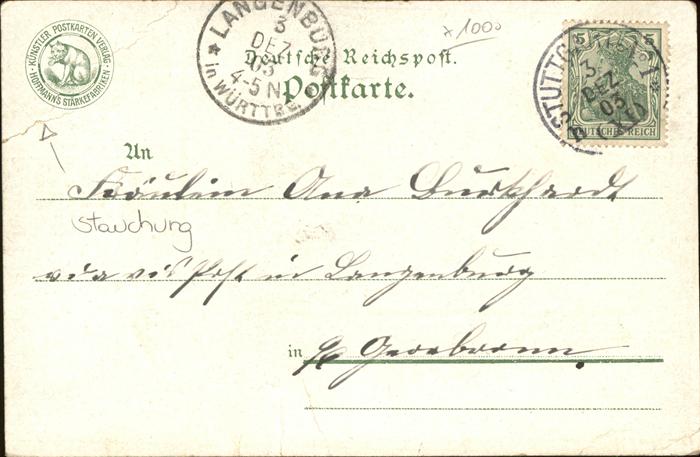 KÜNSTLER POSTKARTEN VERLAG
HOFFMANN'S STÄRKEFABRIKEN
LANGENBURG
3
DEZ
03
4-5 N
in WÜRTTBG.
x 1000
Deutsche Reichspost.
Postkarte.
STUTTGART
3
DEZ
03
5 5
DEUTSCHES REICH
An
Fräulein Ana Burkhardt
Stauchung
vis a vis Post in Langenburg
in
Gerabronn.